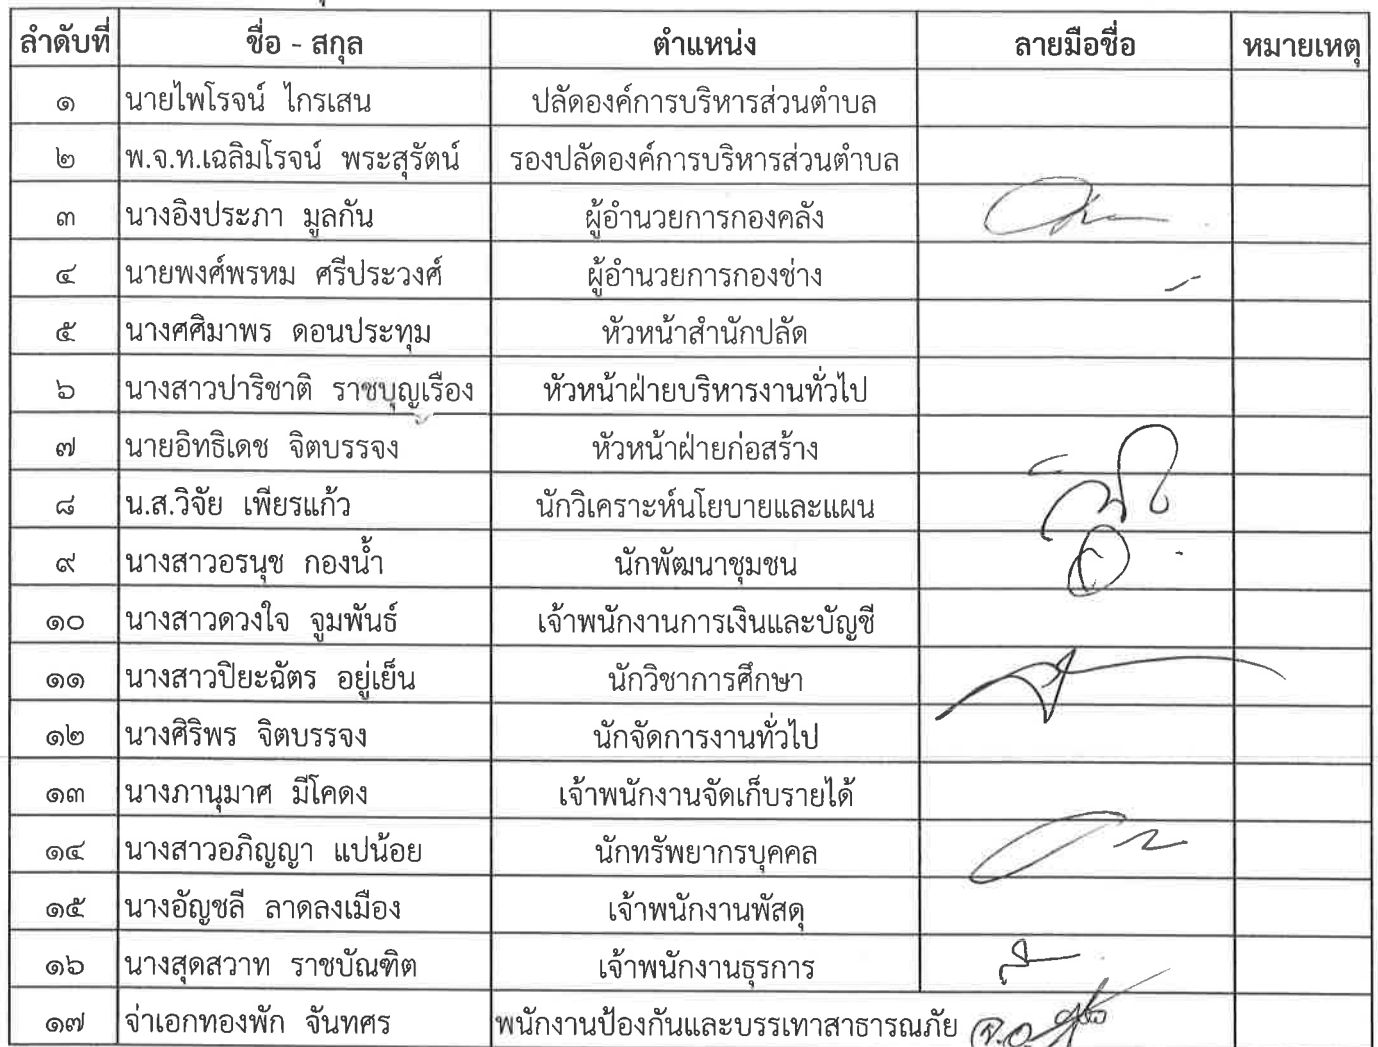 ลำดับที่ ชื่อ - สกุล ตำแหน่ง ลายมือชื่อ หมายเหตุ
๑ นายไพโรจน์ ไกรเสน ปลัดองค์การบริหารส่วนตำบล
๒ พ.จ.ท.เฉลิมโรจน์ พระสุรัตน์ รองปลัดองค์การบริหารส่วนตำบล
๓ นางอิงประภา มูลกัน ผู้อำนวยการกองคลัง
๔ นายพงศ์พรหม ศรีประวงศ์ ผู้อำนวยการกองช่าง
๕ นางศศิมาพร ดอนประทุม หัวหน้าสำนักปลัด
๖ นางสาวปาริชาติ ราชบุญเรือง หัวหน้าฝ่ายบริหารงานทั่วไป
๗ นายอิทธิเดช จิตบรรจง หัวหน้าฝ่ายก่อสร้าง
๘ น.ส.วิจัย เพียรแก้ว นักวิเคราะห์นโยบายและแผน
๙ นางสาวอรนุช กองน้ำ นักพัฒนาชุมชน
๑๐ นางสาวดวงใจ จูมพันธ์ เจ้าพนักงานการเงินและบัญชี
๑๑ นางสาวปิยะฉัตร อยู่เย็น นักวิชาการศึกษา
๑๒ นางศิริพร จิตบรรจง นักจัดการงานทั่วไป
๑๓ นางภานุมาศ มีโคดง เจ้าพนักงานจัดเก็บรายได้
๑๔ นางสาวอภิญญา แปน้อย นักทรัพยากรบุคคล
๑๕ นางอัญชลี ลาดลงเมือง เจ้าพนักงานพัสดุ
๑๖ นางสุดสวาท ราชบัณฑิต เจ้าพนักงานธุรการ
๑๗ จ่าเอกทองพัก จันทศร พนักงานป้องกันและบรรเทาสาธารณภัย จ.อ.